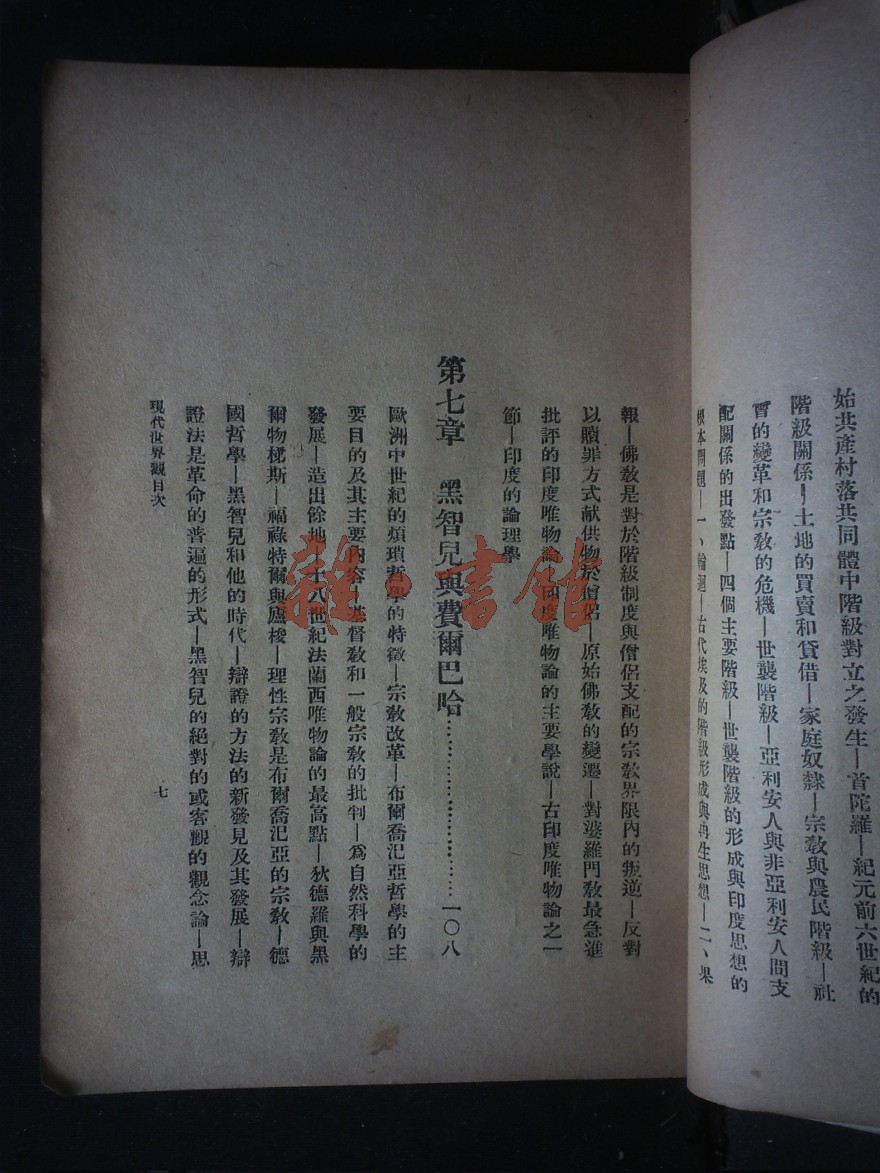 始共產村落共同體中階級對立之發生—首陀羅—紀元前六世紀的
階級關係—土地的買賣和貸借—家庭奴隸—宗教與農民階級—社
會的變革和宗教的危機—世襲階級—亞利安人與非亞利安人間支
配關係的出發點—四個主要階級—世襲階級的形成與印度思想的
根本問題—一、輪迴—古代埃及的階級形成與再生思想—二、果
報—佛教是對於階級制度與僧侶支配的宗教界限內的叛逆—反對
以贖罪方式獻供物於僧侶—原始佛教的變遷—對婆羅門教最急進
批評的印度唯物論—印度唯物論的主要學說—古印度唯物論之一
節—印度的論理學
第七章 黑智兒與費爾巴哈……………………一〇八
歐洲中世紀的煩瑣哲學的特徵—宗教改革—布爾喬汜亞哲學的主
要目的及其主要內容—基督教和一般宗教的批判—為自然科學的
發展—造出餘地—十八世紀法蘭西唯物論的最高點—狄德羅與黑
爾物梯斯—福祿特爾與盧梭—理性宗教是布爾喬汜亞的宗教—德
國哲學—黑智兒和他的時代—辯證的方法的新發見及其發展—辯
證法是革命的普遍的形式—黑智兒的絕對的或客觀的觀念論—思
現代世界觀目次
七
雜·書館